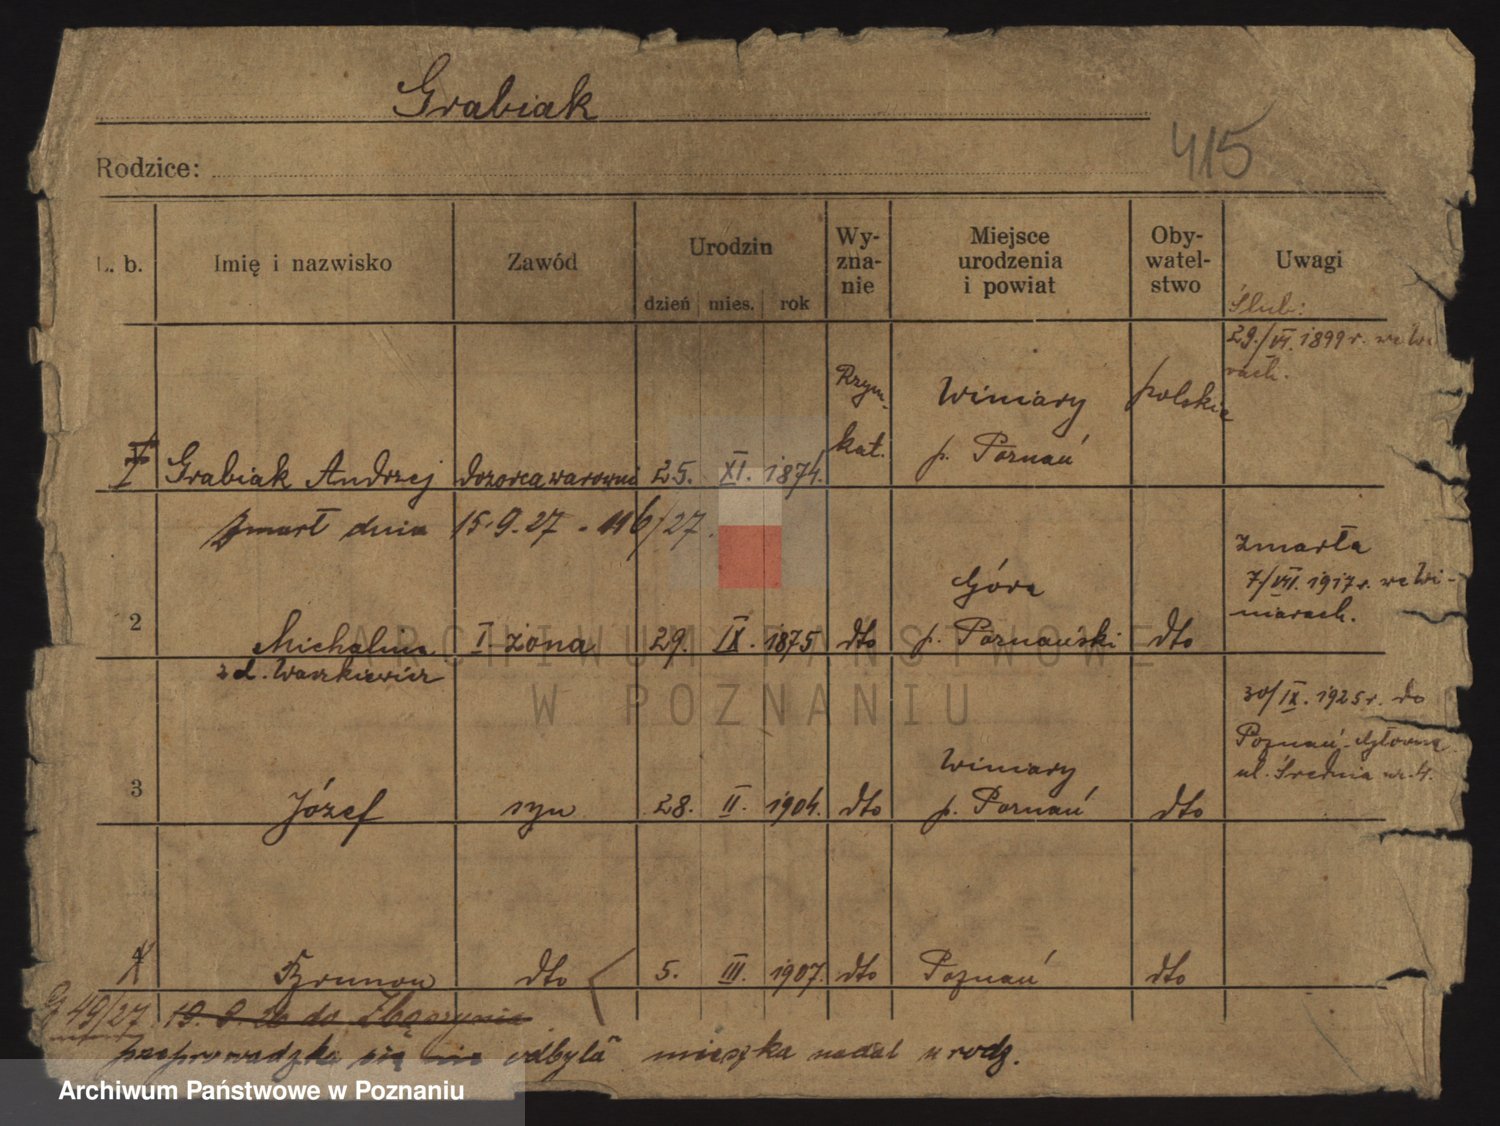 Grabiak
415
Rodzice:
L. b. Imię i nazwisko Zawód Urodzin dzień mies. rok Wy-zna-nie Miejsce urodzenia i powiat Oby-watel-stwo Uwagi
Ślub:
29./VI. 1899 r. we Wi
rach.
1 Grabiak Andrzej dozorca warowni 25. XI. 1874. Rzym.-kat. Winiary p. Poznań polskie
zmarł dnia 15.9.27 - 116/27.
zmarła
7/VII. 1917 r. we Wi-
niarach.
2 Michalina I. żona 29. IX. 1875 dto Góra p. Poznański dto
z d. Waszkiewicz
30/IX. 1925 r. do
Poznań-Główna
ul. Średnia nr. 4.
3 Józef syn 28. II. 1904. dto Winiary p. Poznań dto
4 Brunon dto 5. III. 1907. dto Poznań dto
49/27 19. 9. 26 do Zbąszynia
przeprowadzka się nie odbyła mieszka nadal u rodz.
ARCHIWUM PAŃSTWOWE
W POZNANIU
Archiwum Państwowe w Poznaniu